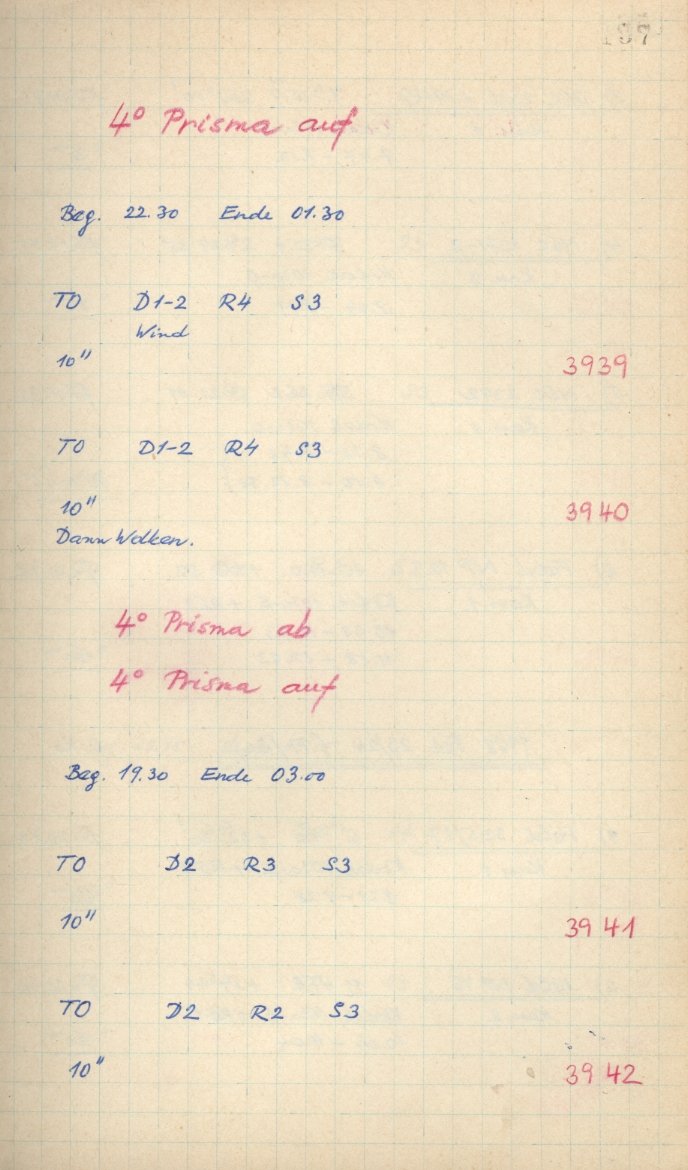 4° Prisma auf
Beg. 22.30 Ende 01.30
TO D1-2 R4 S3
Wind
10" 3939
TO D1-2 R4 S3
10" 3940
Dann Wolken.
4° Prisma ab
4° Prisma auf
Beg. 19.30 Ende 03.00
TO D2 R3 S3
10" 3941
TO D2 R2 S3
10" 3942